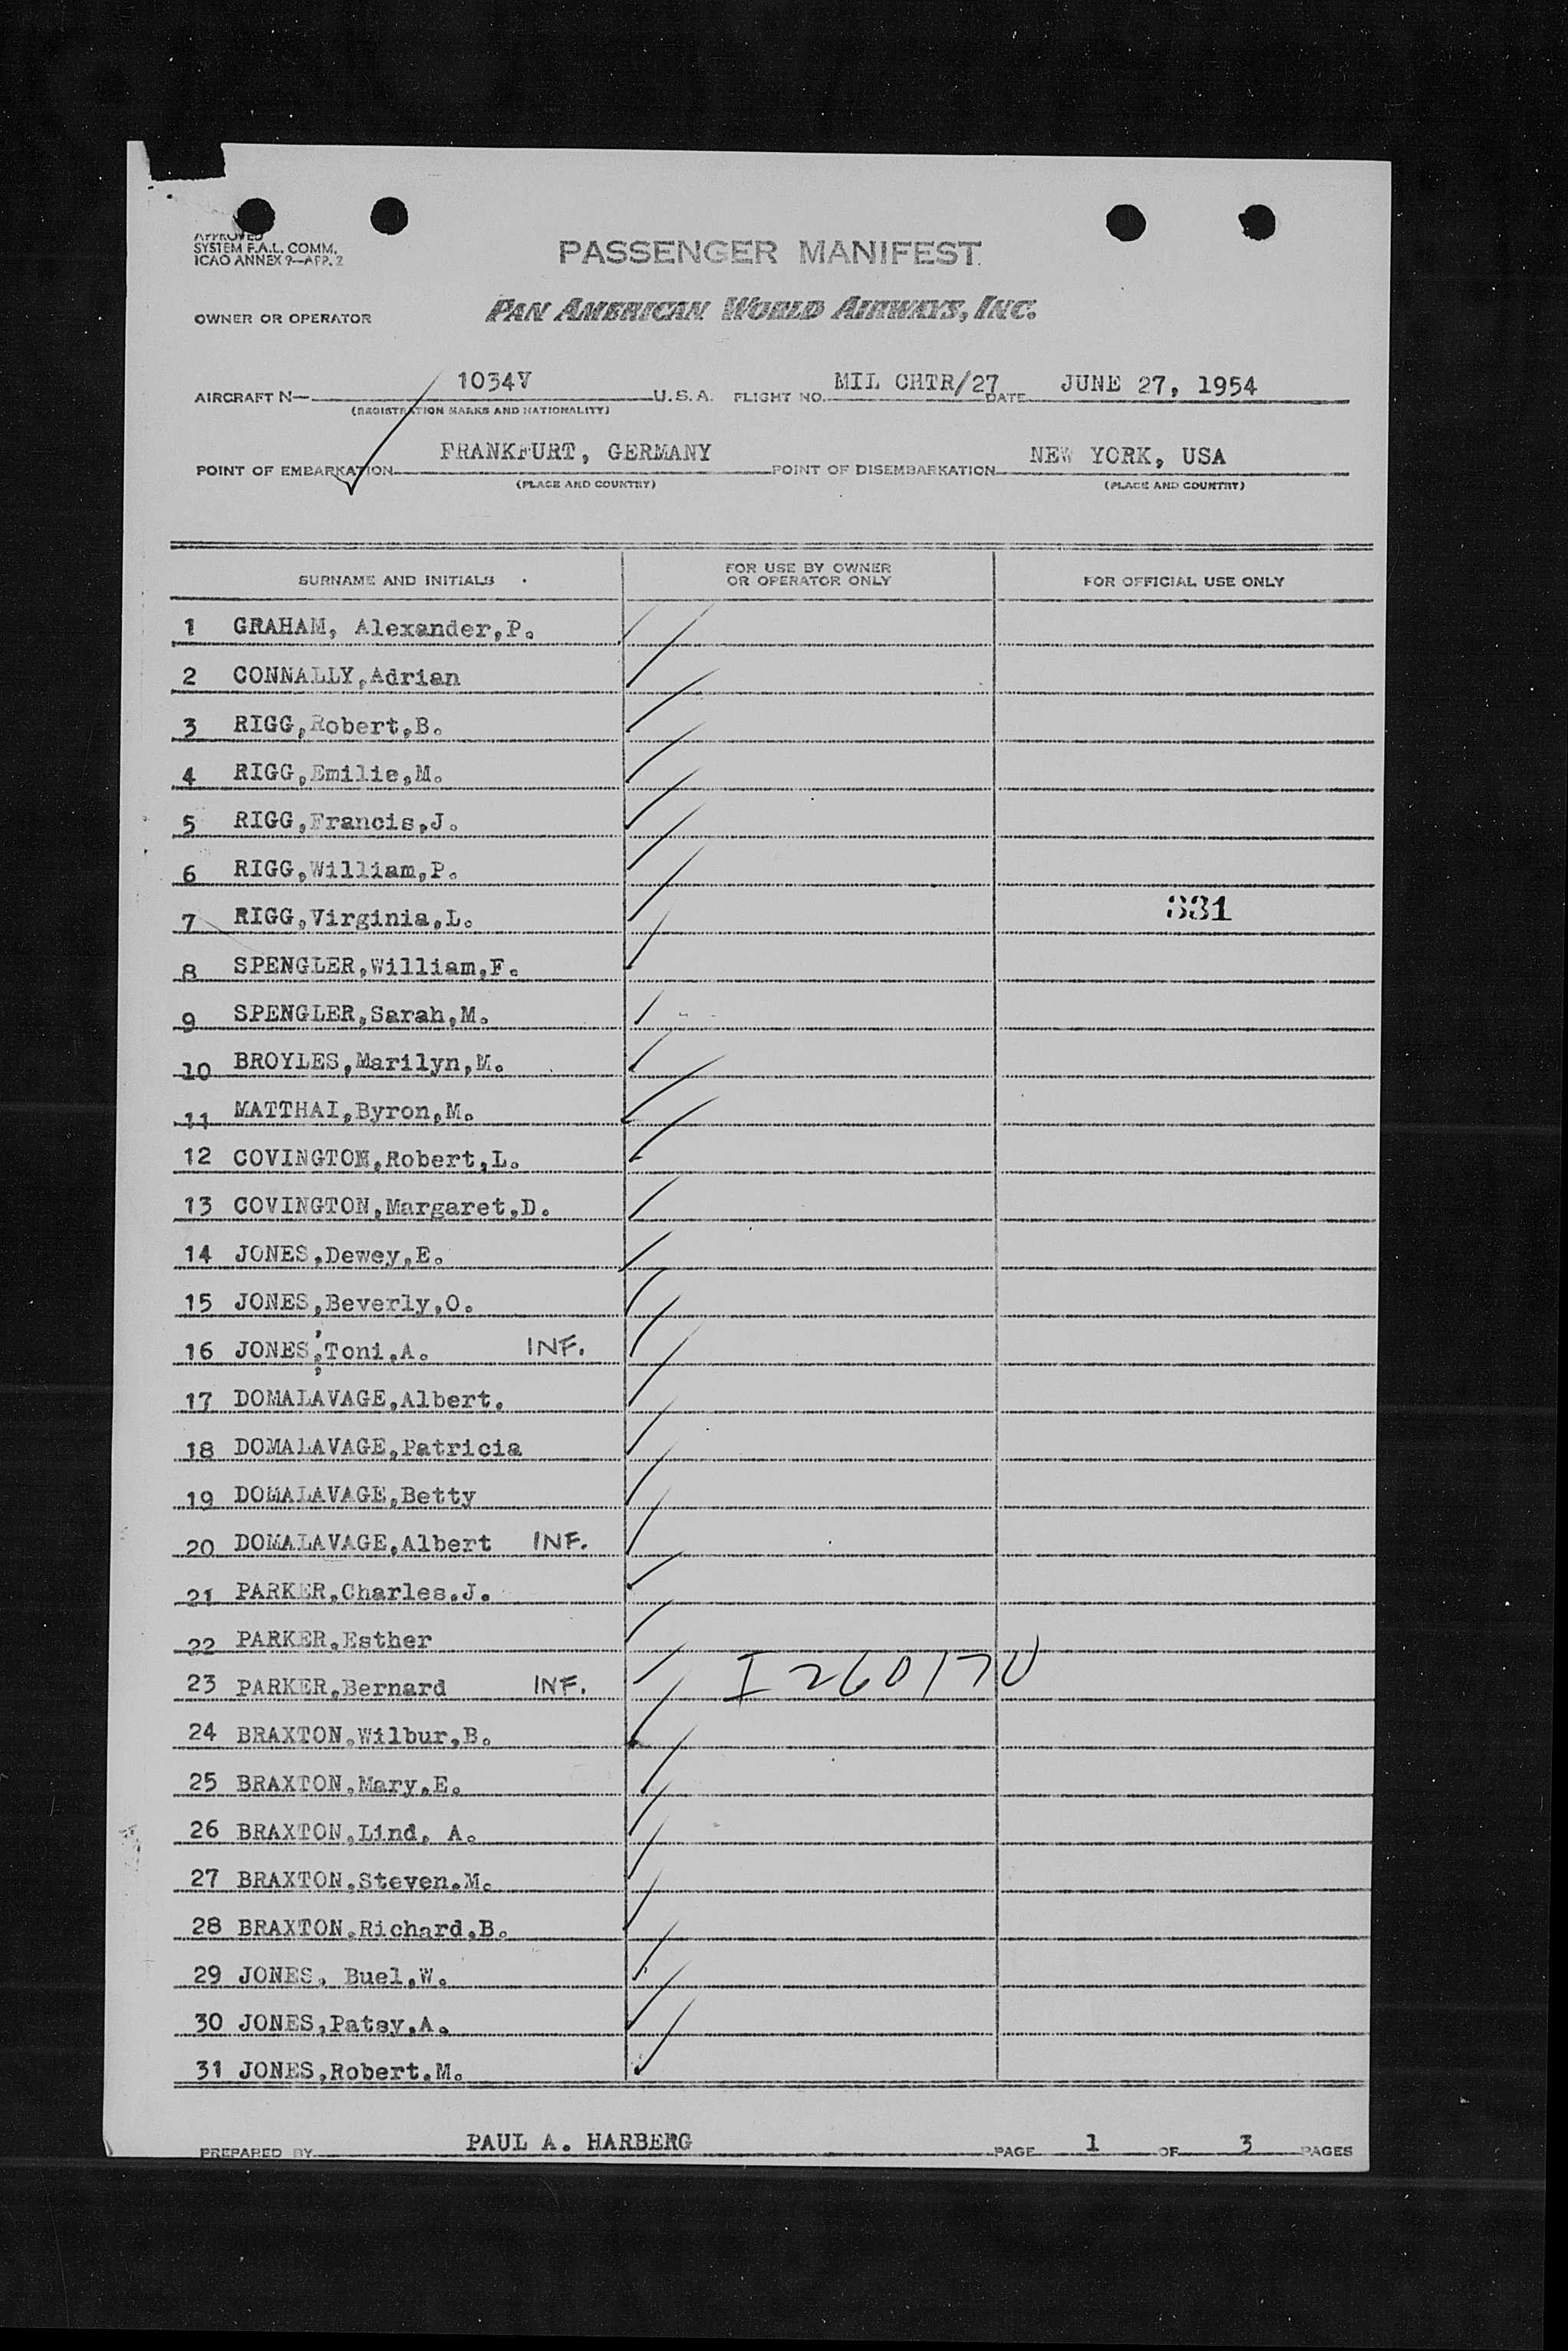 APPROVED
SYSTEM F.A.L. COMM.
ICAO ANNEX 9—APP. 2
PASSENGER MANIFEST
OWNER OR OPERATOR PAN AMERICAN WORLD AIRWAYS, INC.
AIRCRAFT N— 1034V U.S.A. FLIGHT NO. MIL CHTR/27 DATE JUNE 27, 1954
(REGISTRATION MARKS AND NATIONALITY)
POINT OF EMBARKATION FRANKFURT, GERMANY POINT OF DISEMBARKATION NEW YORK, USA
(PLACE AND COUNTRY) (PLACE AND COUNTRY)
SURNAME AND INITIALS FOR USE BY OWNER OR OPERATOR ONLY FOR OFFICIAL USE ONLY
1 GRAHAM, Alexander,P.
2 CONNALLY,Adrian
3 RIGG,Robert,B.
4 RIGG,Emilie,M.
5 RIGG,Francis,J.
6 RIGG,William,P.
7 RIGG,Virginia,L. 331
8 SPENGLER,William,F.
9 SPENGLER,Sarah,M.
10 BROYLES,Marilyn,M.
11 MATTHAI,Byron,M.
12 COVINGTON,Robert,L.
13 COVINGTON,Margaret,D.
14 JONES,Dewey,E.
15 JONES,Beverly,O.
16 JONES,Toni,A. INF.
17 DOMALAVAGE,Albert.
18 DOMALAVAGE,Patricia
19 DOMALAVAGE,Betty
20 DOMALAVAGE,Albert INF.
21 PARKER,Charles.J.
22 PARKER,Esther
23 PARKER,Bernard INF.
24 BRAXTON,Wilbur,B.
25 BRAXTON,Mary,E.
26 BRAXTON,Lind, A.
27 BRAXTON,Steven.M.
28 BRAXTON,Richard,B.
29 JONES, Buel,W.
30 JONES,Patsy,A.
31 JONES,Robert.M.
PREPARED BY PAUL A. HARBERG PAGE 1 OF 3 PAGES